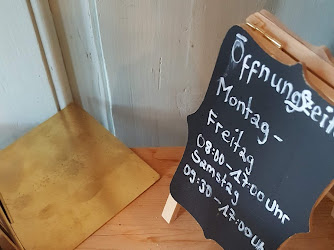 Öffnungszeit
Montag-
Freitag
08:00-17:00 Uhr
Samstag
09:30-17:00 Uh